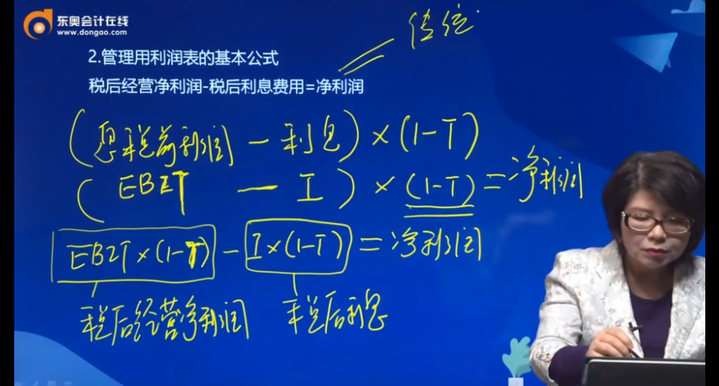 东奥会计在线
www.dongao.com
传统
2.管理用利润表的基本公式
税后经营净利润-税后利息费用=净利润
(息税前利润 - 利息) × (1-T)
(EBIT - I) × (1-T) = 净利润
EBIT×(1-T) - I×(1-T) = 净利润
税后经营净利润 税后利息